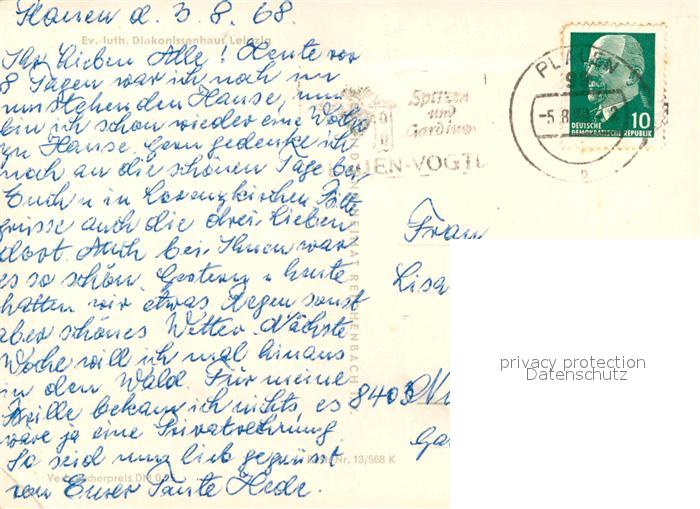 Plauen d. 3.8.68.
Ev.-luth. Diakonissenhaus Leipzig
Ihr Lieben Alle! Heute vor
8 Tagen war ich noch im
umstehenden Hause, nun
bin ich schon wieder eine Woche
zu Hause. Gern gedenke ich
noch an die schönen Tage bei
Euch u. in Lorenzkirchen. Bitte
grüsse auch die drei Lieben
dort. Auch bei Ihnen war
es so schön. Gestern u. heute
hatten wir etwas Regen sonst
aber schönes Wetter. Nächste
Woche will ich mal hinaus
in den Wald. Für meine
Brille bekam ich nichts, es
wäre ja eine Privatrechnung
So seid nun lieb gegrüsst
von Eurer Tante Hede.
Verbraucherpreis DM
Nr. 13/568 K
REICHENBACH
Spitzen
und
Gardinen
PLAUEN-VOGTL
PLAUEN
-5.8
10
DEUTSCHE
DEMOKRATISCHE REPUBLIK
Frau
Lisa
8403
privacy protection
Datenschutz